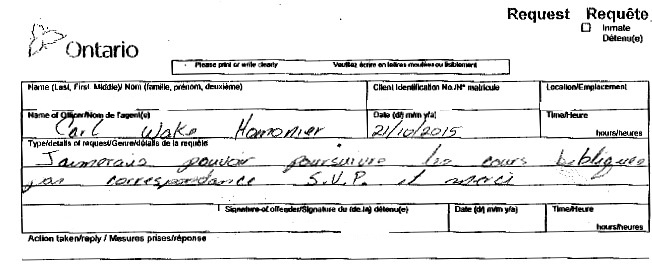 Request Requête
Inmate
Détenu(e)
Ontario
Please print or write clearly Veuillez écrire en lettres moulées ou lisiblement
Name (Last, First Middle)/ Nom (famille, prénom, deuxième) Client Identification No./N° matricule Location/Emplacement
Name of Officer/Nom de l'agent(e) Date (d/j m/m y/a) Time/Heure
Carl Wake 21/10/2015 hours/heures
Type/details of request/Genre/détails de la requête
J'aimerais pouvoir poursuivre les cours bibliques
par correspondance S.V.P. et merci
Signature of offender/Signature du (de la) détenu(e) Date (d/j m/m y/a) Time/Heure
hours/heures
Action taken/reply / Mesures prises/réponse